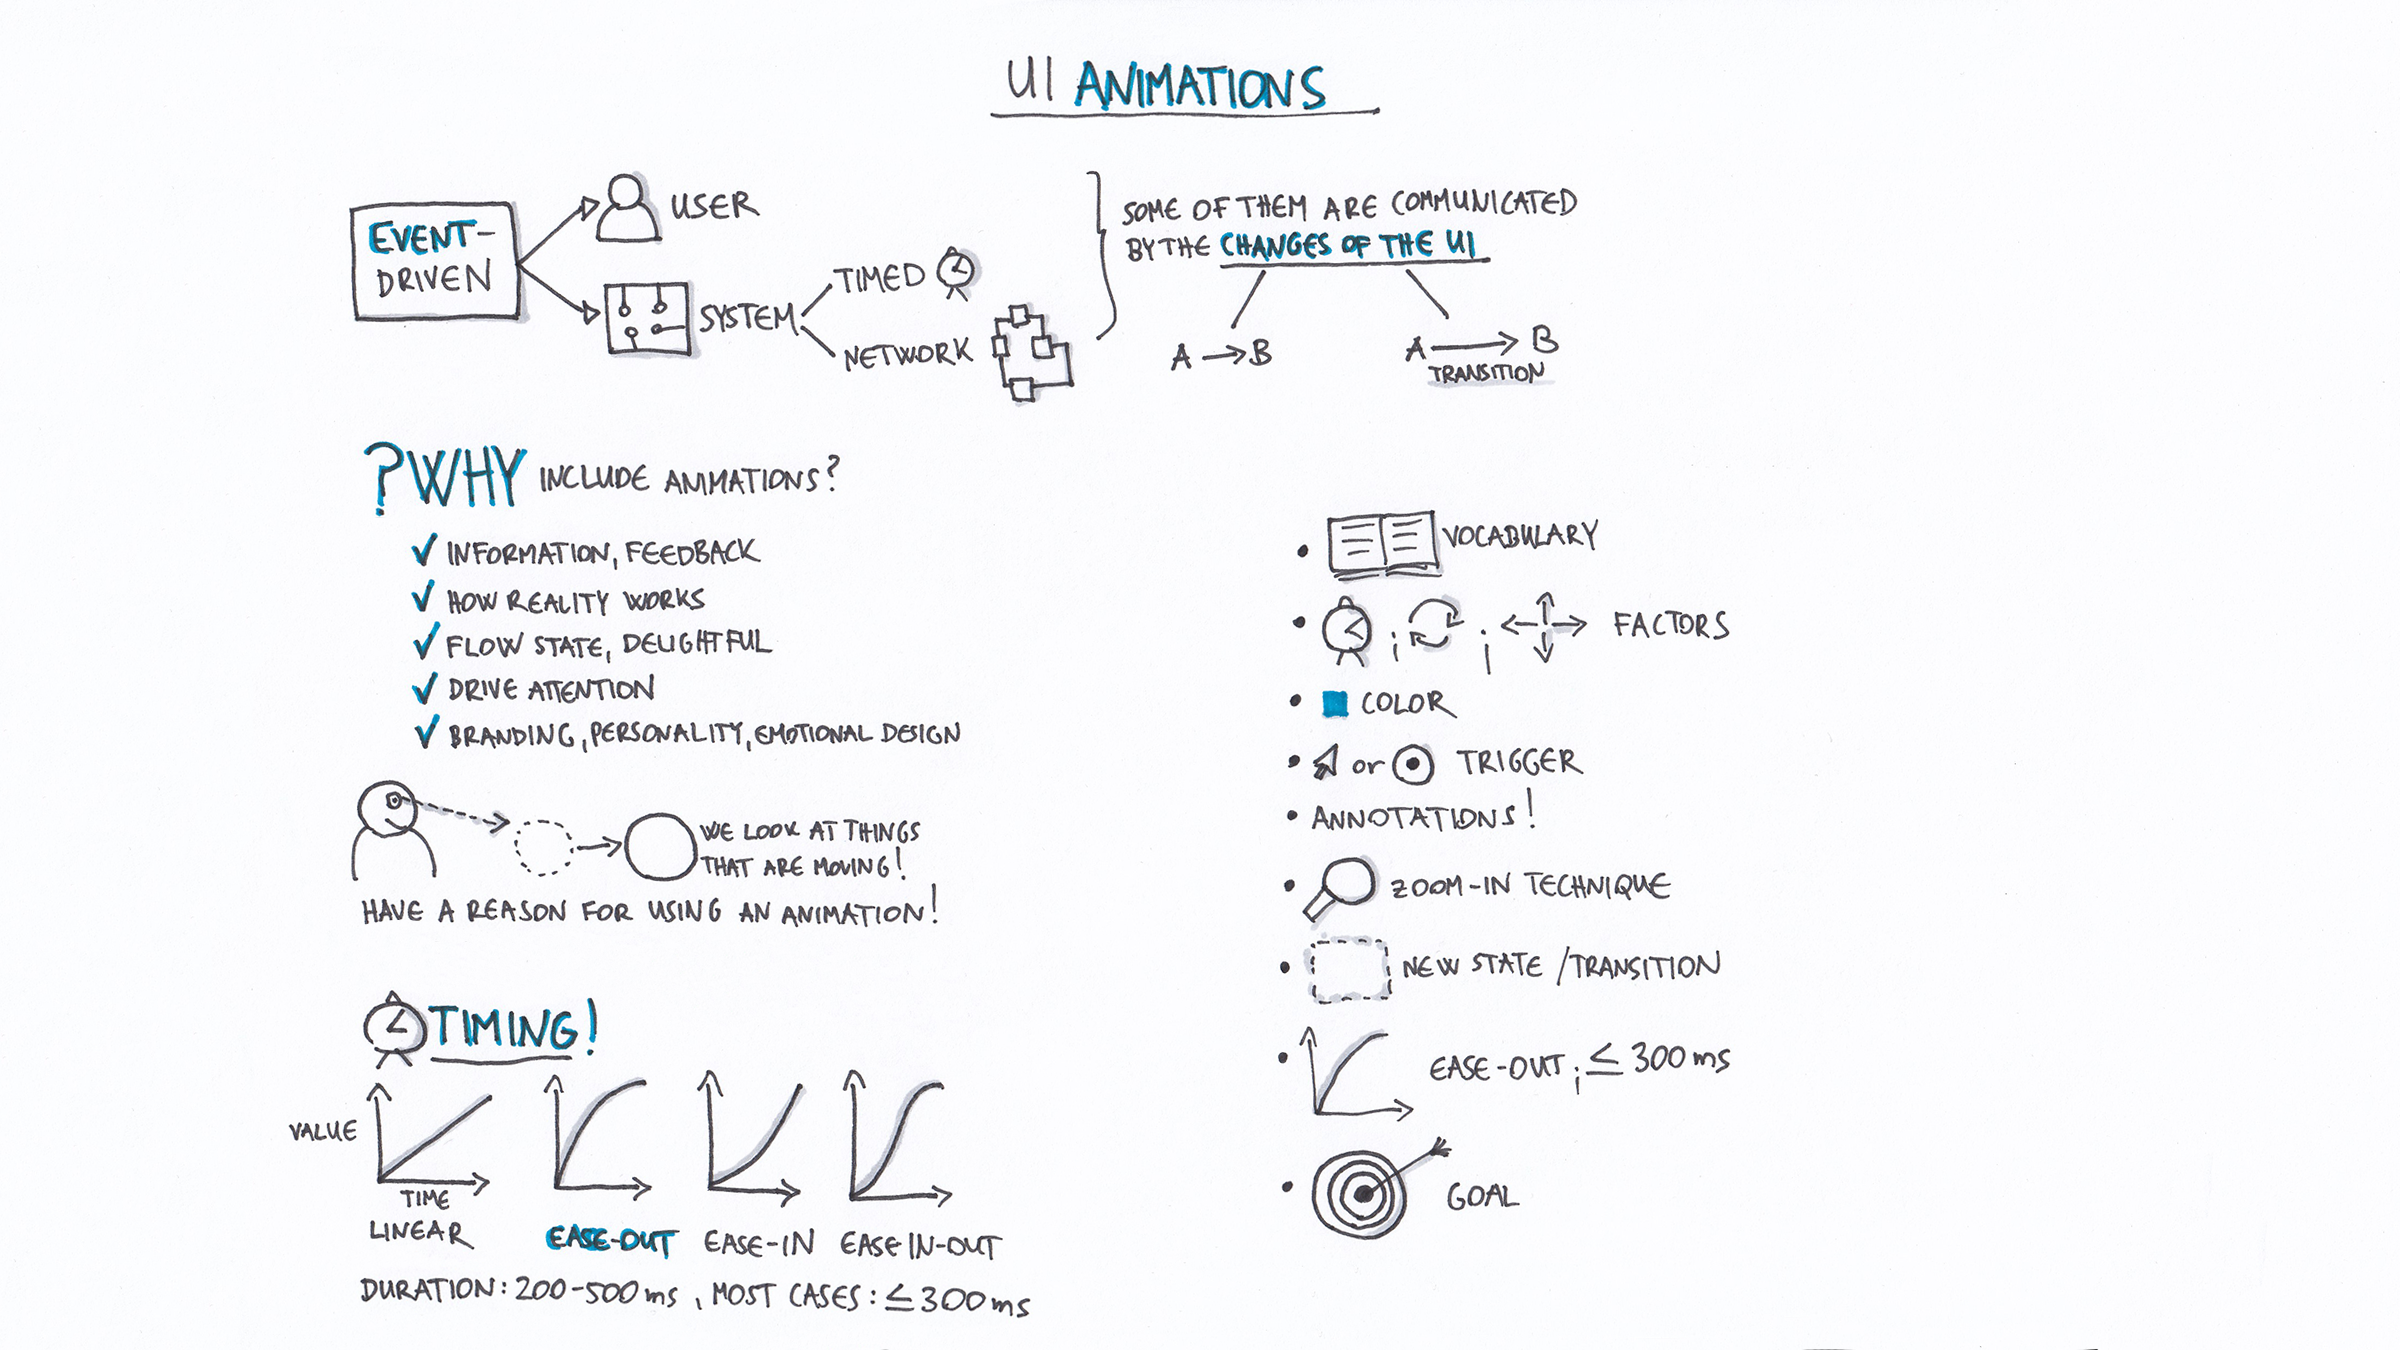 UI ANIMATIONS
EVENT-
DRIVEN
USER
SYSTEM
TIMED
NETWORK
SOME OF THEM ARE COMMUNICATED
BY THE CHANGES OF THE UI
A → B
A → B
TRANSITION
? WHY INCLUDE ANIMATIONS?
✓ INFORMATION, FEEDBACK
✓ HOW REALITY WORKS
✓ FLOW STATE, DELIGHTFUL
✓ DRIVE ATTENTION
✓ BRANDING, PERSONALITY, EMOTIONAL DESIGN
WE LOOK AT THINGS
THAT ARE MOVING!
HAVE A REASON FOR USING AN ANIMATION!
TIMING!
VALUE
TIME
LINEAR
EASE-OUT
EASE-IN
EASE IN-OUT
DURATION: 200-500 ms, MOST CASES: ≤ 300 ms
• VOCABULARY
• ; ; FACTORS
• COLOR
• or TRIGGER
• ANNOTATIONS!
• ZOOM-IN TECHNIQUE
• NEW STATE / TRANSITION
• EASE-OUT ; ≤ 300 ms
• GOAL